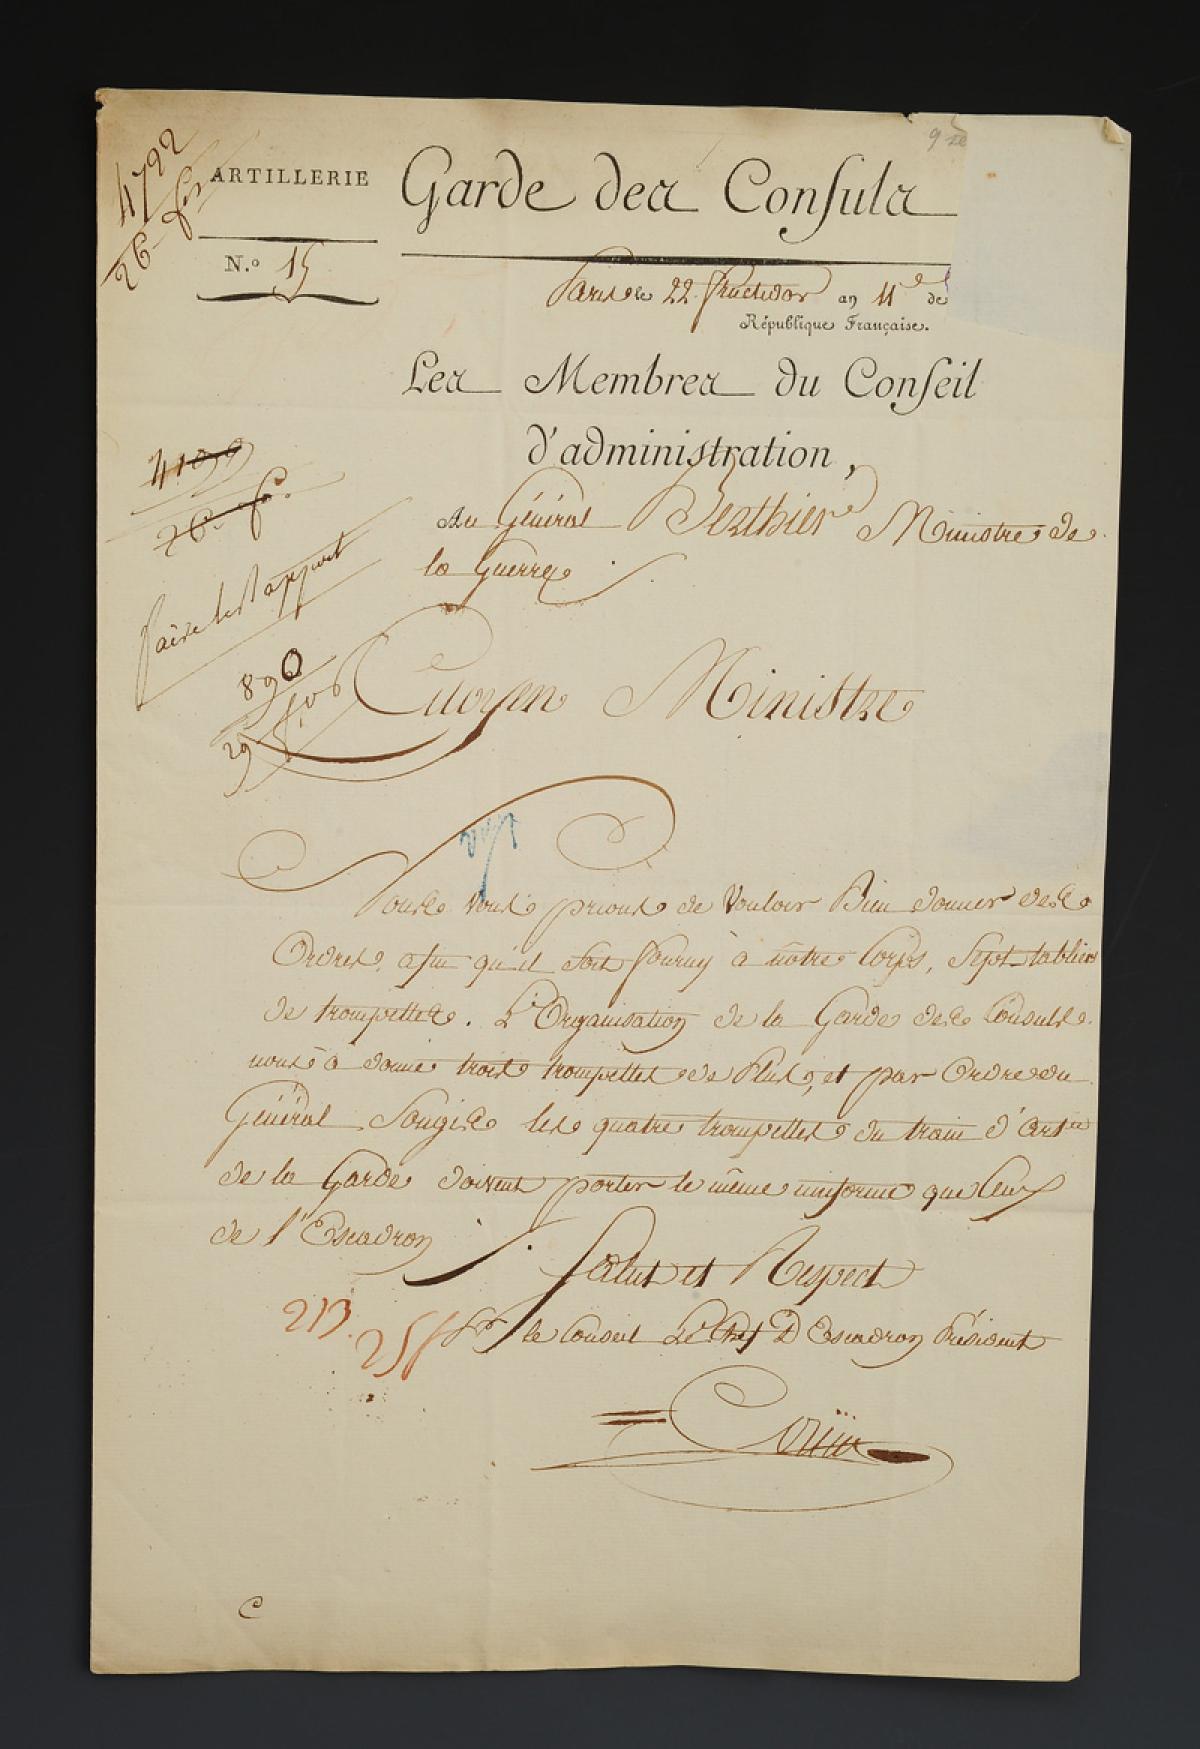 4792
26 f.
ARTILLERIE
N.º 15
Garde des Consuls
Paris le 22 fructidor an 11e de
République Française.
Les Membres du Conseil
d'administration,
Au Général Berthier Ministre de
la Guerre
faire le Rapport
890
29
Citoyen Ministre
Nous Vous prions de Vouloir Bien donner des
Ordres, afin qu'il soit fourny à nôtre Corps, Sept tabliers
de trompettes. L'Organisation de la Garde des Consuls
nous à donné trois trompettes de Plus, et par Ordre du
Général Songis les quatre trompettes du train d'Artie
de la Garde doivent porter le même uniforme que Ceux
de l'Escadron
Salut et Respect
213.
Pr le Conseil Le Chef D'Escadron Président
C